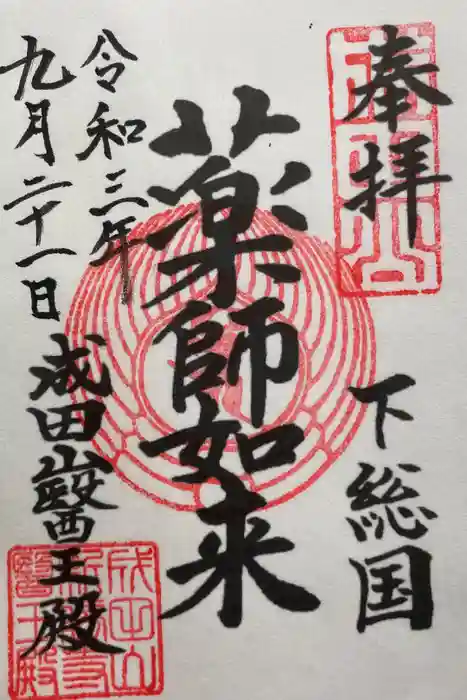 奉拝
下総国
薬師如来
令和三年
九月二十一日
成田山醫王殿